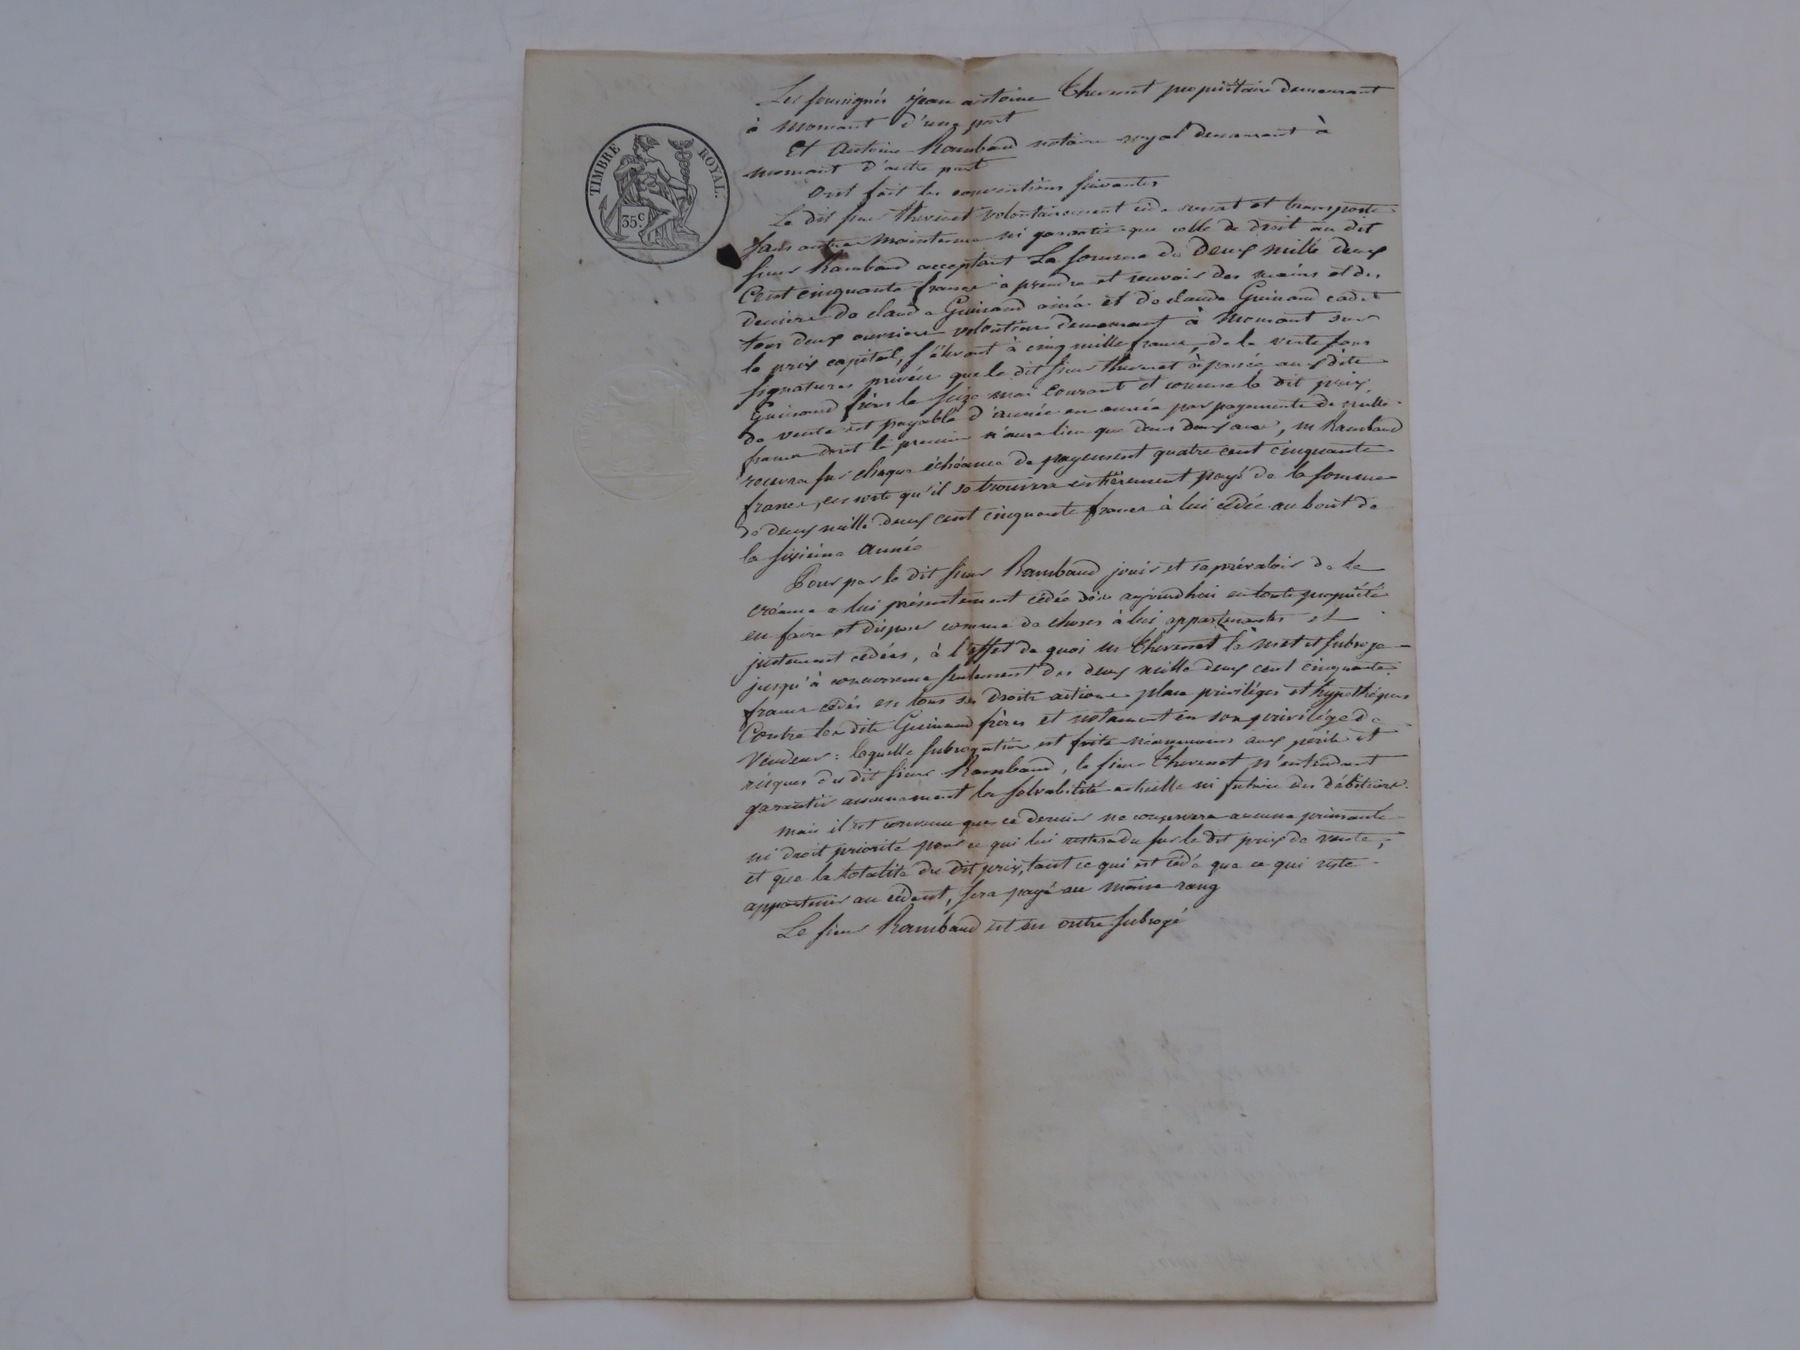 TIMBRE ROYAL.
35 c.
Les soussignés jean antoine Thevenet propriétaire demeurant
à mornant d'une part
Et Antoine Rambaud notaire royal demeurant à
mornant d'autre part
Ont fait les conventions suivantes
Le dit sieur thevenet volontairement cède remet et transporte
sans autre maintenue ni garantie que celle de droit au dit
sieur Rambaud acceptant La somme de Deux mille deux
Cent cinquante francs à prendre et recevoir des mains et des
deniers de claude Guinand ainé et de claude Guinand cadet
tous deux ouvriers demeurant à Mornant sur
le prix capital, s'élevant à cinq mille francs, de la vente sous
signatures privées que le dit sieur thevenet a passée aux dits
Guinand frères le seize mai courant et comme le dit prix
de vente est payable d'année en année par payements de mille
francs dont le premier n'aura lieu que dans deux ans, m Rambaud
recevra sur chaque échéance de payement quatre cent cinquante
francs, en sorte qu'il se trouvera entièrement payé de la somme
de deux mille deux cent cinquante francs à lui cédée au bout de
la sixième année
Pour par le dit sieur Rambaud jouir et se prévaloir de la
créance a lui présentement cédée dès aujourdhui en toute propriété
en faire et disposer comme de choses à lui appartenantes et
justement cédées, à l'effet de quoi m Thevenet le met et subroge
jusqu'à concurrence seulement des deux mille deux cent cinquante
francs cédés en tous ses droits actions place priviléges et hypothéques
Contre les dits Guinand frères et notament en son privilége de
Vendeur : laquelle subrogation est faite néanmoins aux périls et
risques du dit sieur Rambaud, le sieur Thevenet n'entendant
garantir aucunement la solvabilité actuelle ni future des débiteurs.
mais il est convenu que ce dernier ne conservera aucune primauté
ni droit priorité pour ce qui lui restera du sur le dit prix de vente,
et que la totalité du dit prix, tant ce qui est cédé que ce qui reste
appartenir au cédant, sera payé au même rang
Le sieur Rambaud est en outre subrogé